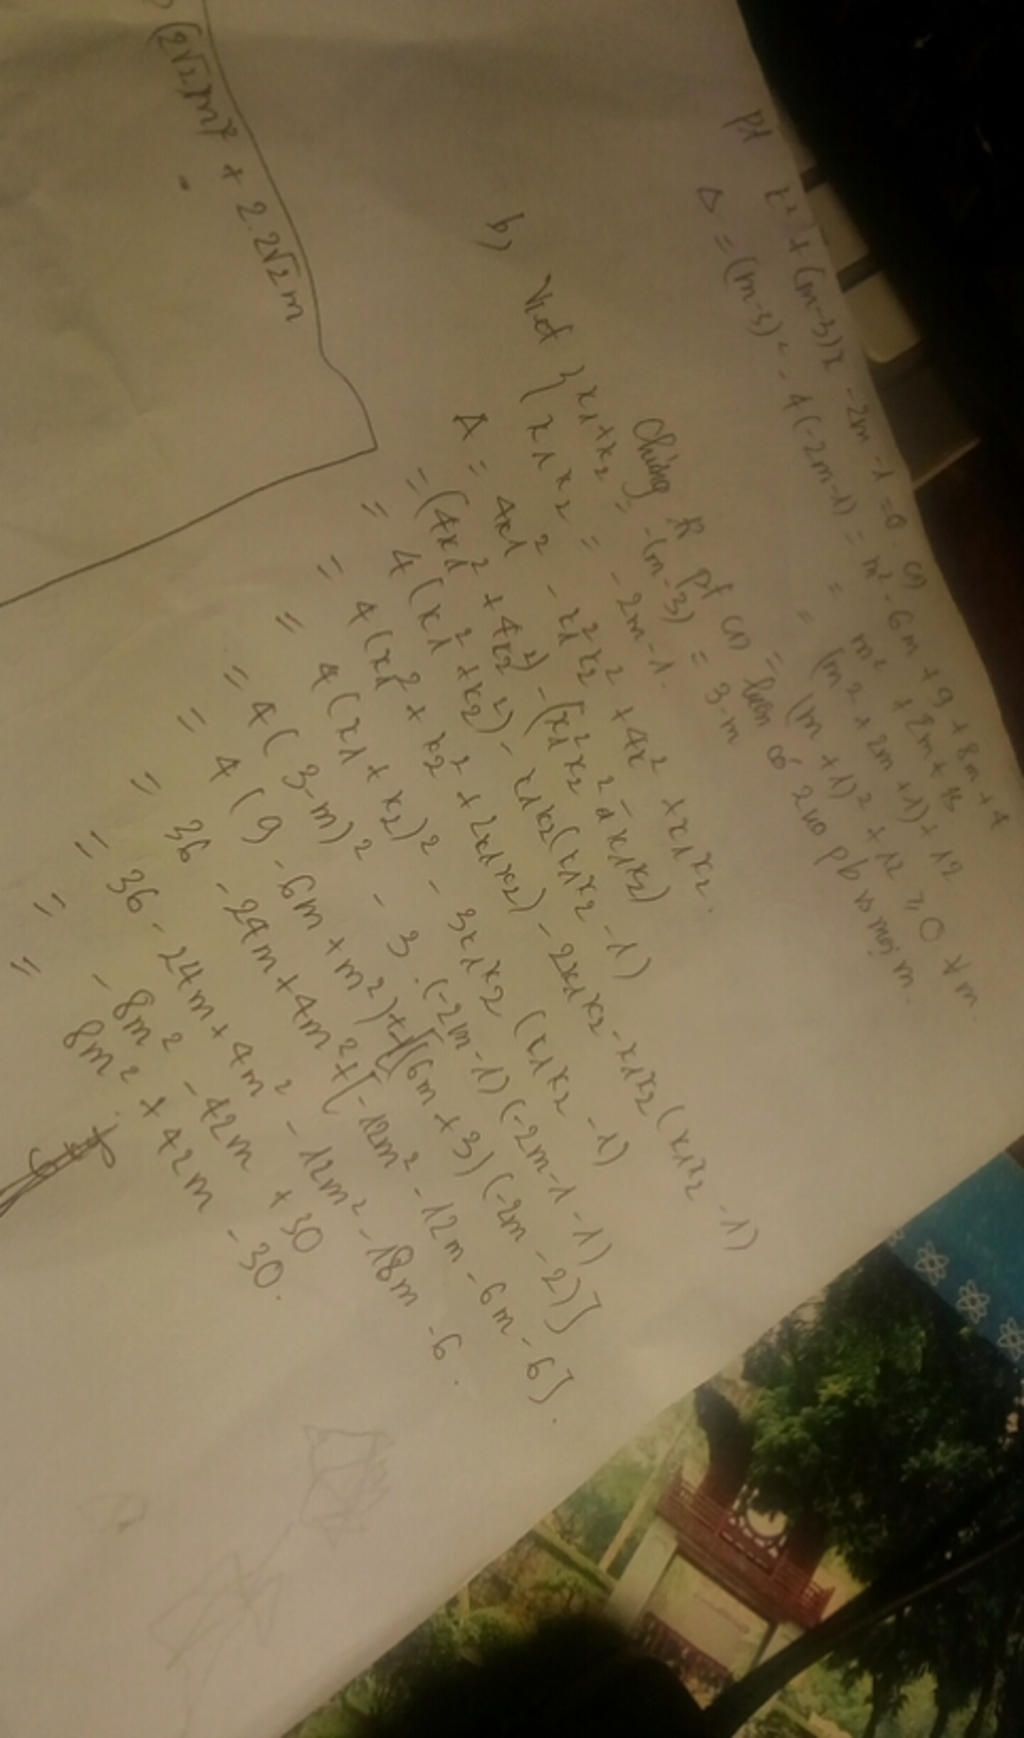 pt x² + (m-3)x - 2m - 1 = 0 (1)
Δ = (m-3)² - 4(-2m-1) = m² - 6m + 9 + 8m + 4
= m² + 2m + 13
= (m² + 2m + 1) + 12
= (m + 1)² + 12 ≥ 0 ∀m.
Chứng tỏ pt (1) luôn có 2 no pb vs mọi m.
b) Viet { x1 + x2 = -(m-3) = 3-m
x1 x2 = -2m - 1.
A = 4x1² - x1²x2² + 4x2² + x1x2.
= (4x1² + 4x2²) - (x1²x2² - x1x2)
= 4(x1² + x2²) - x1x2(x1x2 - 1)
= 4(x1² + x2² + 2x1x2) - 2x1x2 - x1x2(x1x2 - 1)
= 4(x1 + x2)² - 3x1x2 (x1x2 - 1)
= 4(3-m)² - 3.(-2m-1)(-2m-1-1)
= 4(9 - 6m + m²) + [(6m + 3)(-2m - 2)]
= 36 - 24m + 4m² + [-12m² - 12m - 6m - 6].
= 36 - 24m + 4m² - 12m² - 18m - 6.
= - 8m² - 42m + 30
= 8m² + 42m - 30.
(2√2m)² + 2.2√2m